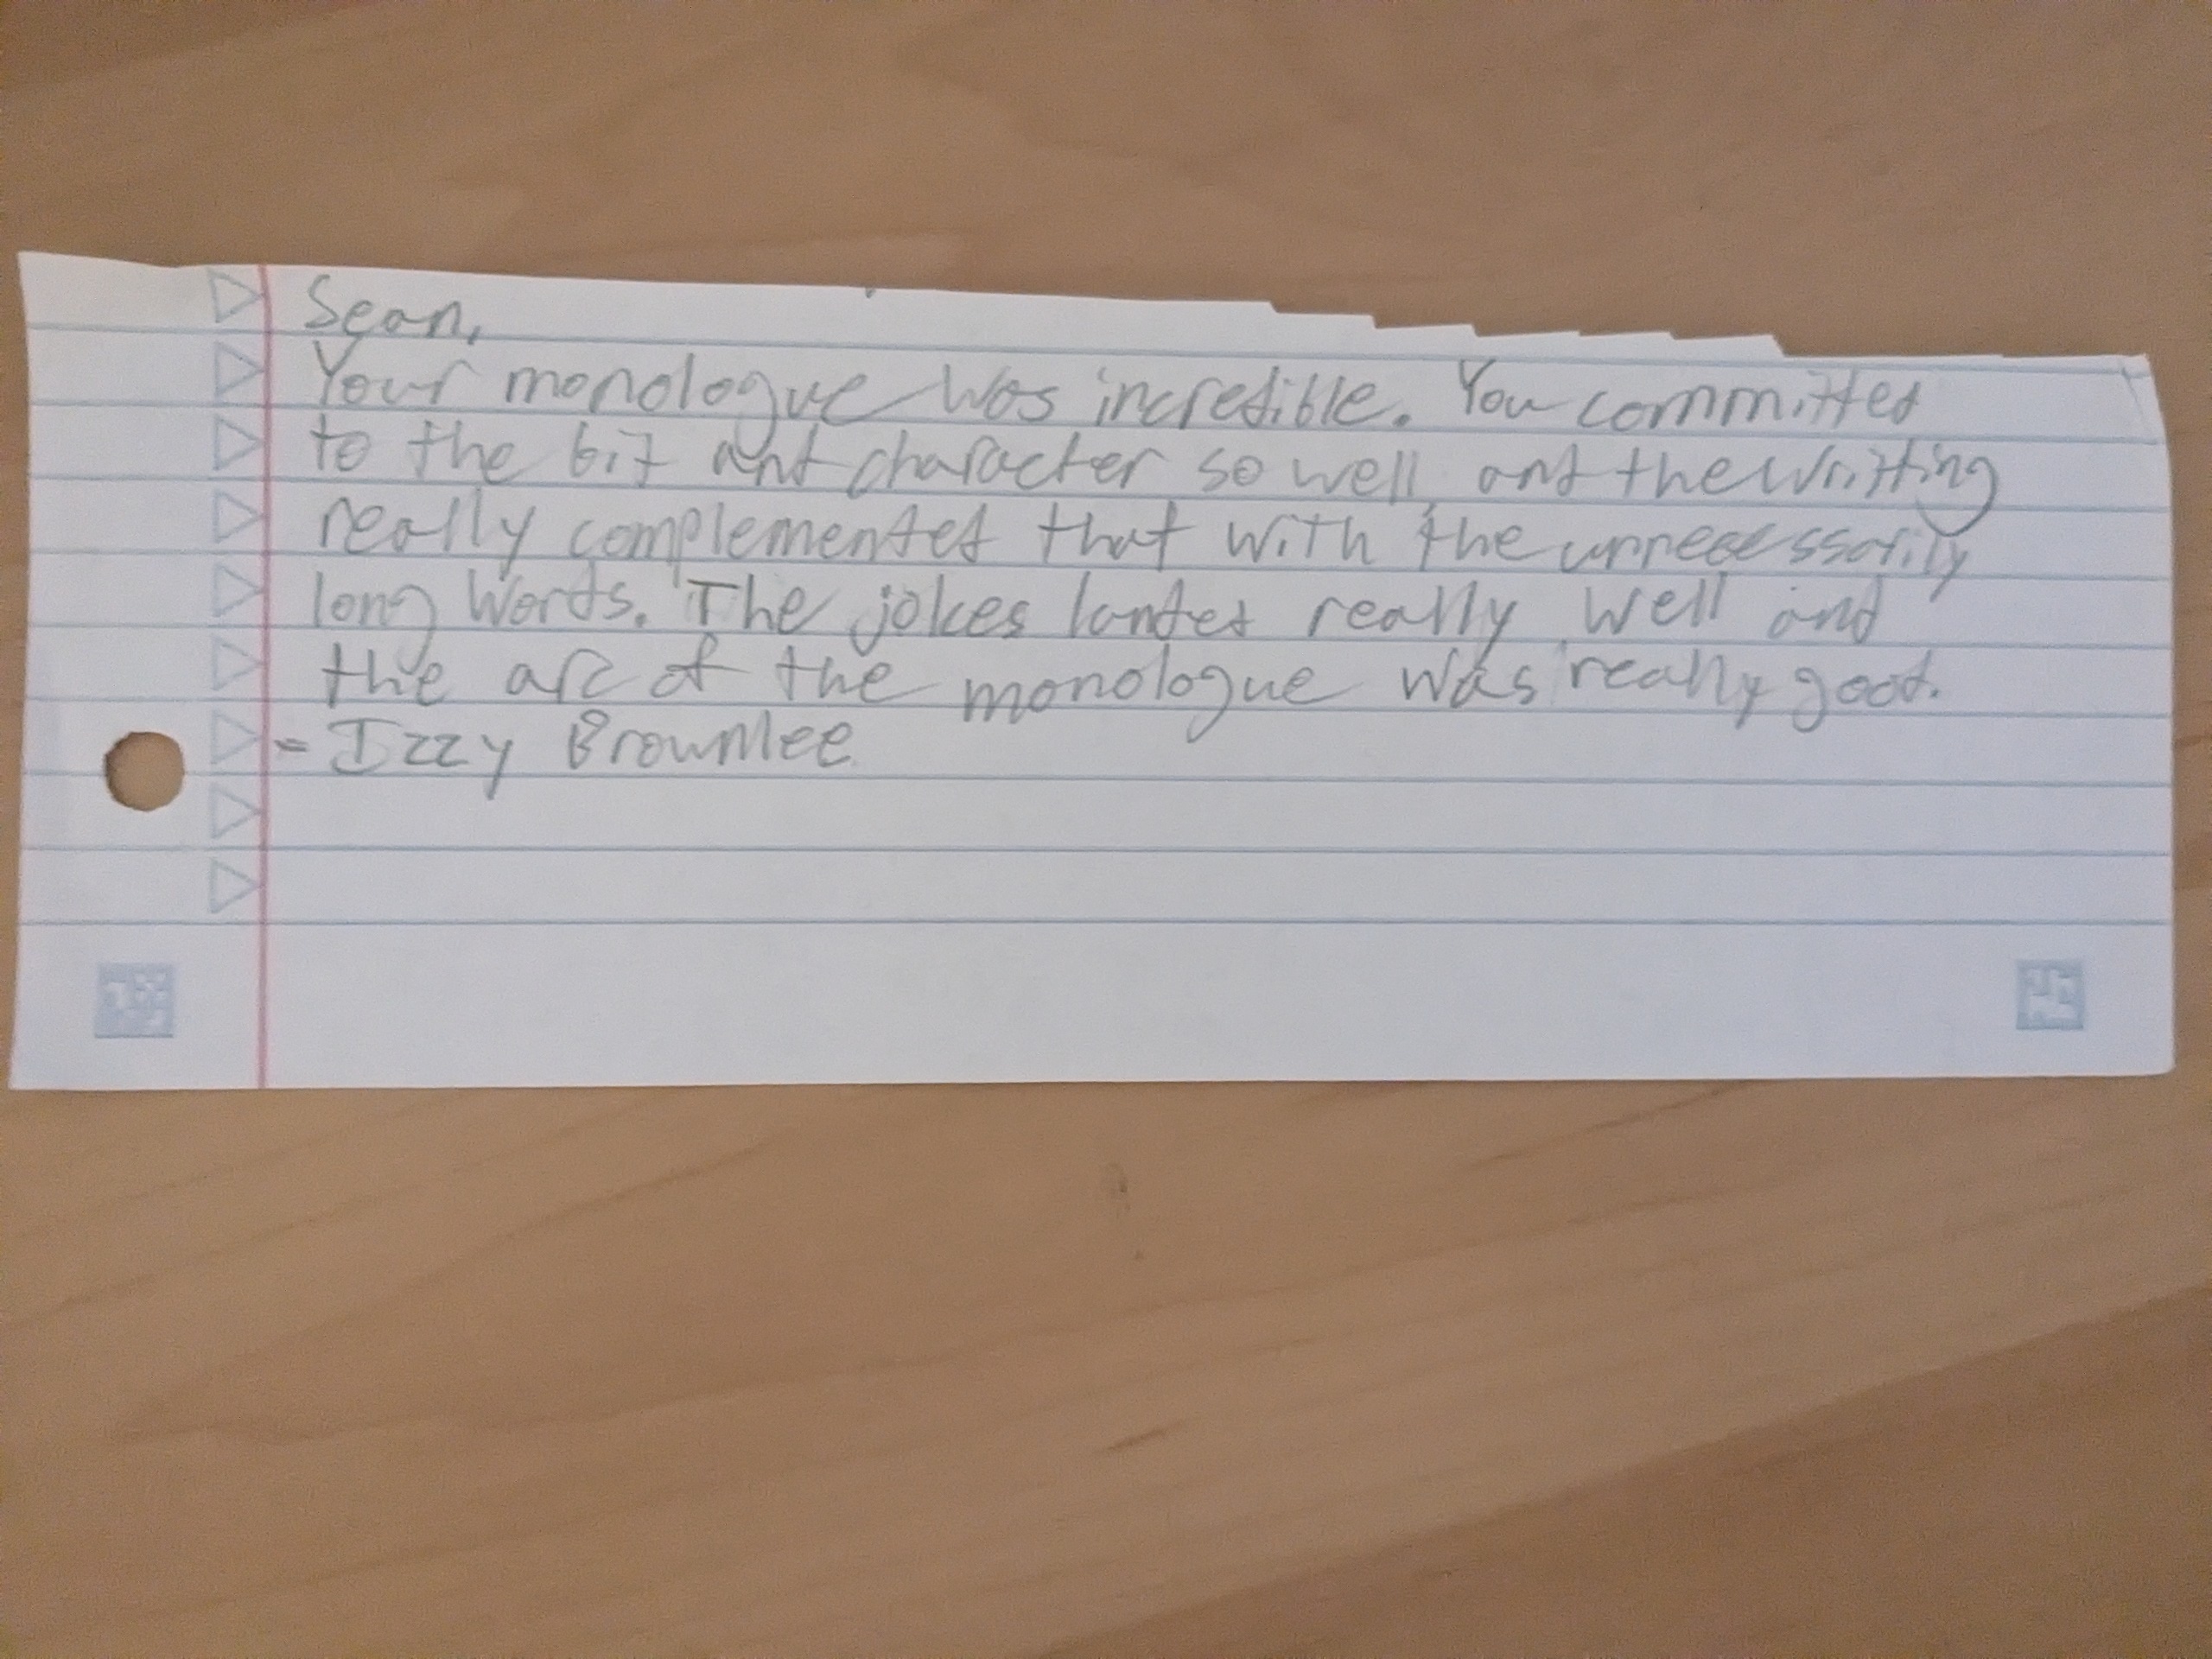 Sean,
Your monologue was incredible. You committed
to the bit and character so well and the writting
really complemented that with the unnecessarily
long words. The jokes landed really well and
the arc of the monologue was really good.
- Izzy Brownlee